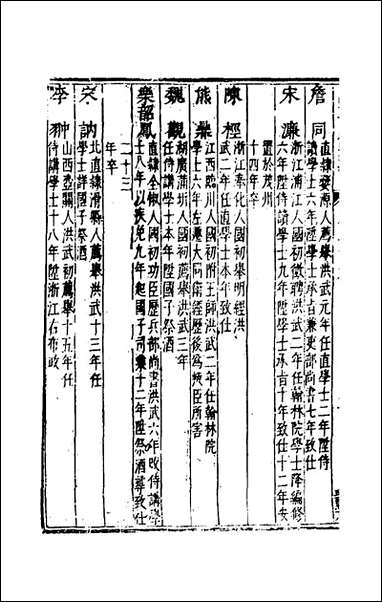 詹同
直隸婺源人薦舉洪武元年任直學士二年陞侍
讀學士六年陞學士承旨兼吏部尚書七年致仕
宋濂
浙江浦江人國初徵聘洪武二年任翰林院學士降編修
六年陞侍講學士九年陞學士承旨十年致仕十二年安
置於茂州
十四年卒
陳桱
浙江奉化人國初舉明經洪
武二年任直學士本年致仕
熊鼎
江西臨川人國初附王師洪武二年任翰林院
學士六年左遷大同衛經歷後為賊臣所害
魏觀
湖廣蒲圻人國初薦舉洪武三年
任侍講學士本年陞國子祭酒
樂韶鳳
直隸全椒人國初功臣歷兵部尚書洪武六年改侍講學
士八年以疾免九年起國子司業十二年陞祭酒尋致仕
二十三
年卒
宋訥
北直隸滑縣人薦舉洪武十三年任
學士詳國子祭酒
李翀
山西壺關人洪武初薦舉十五年任
侍講學士十八年陞浙江右布政